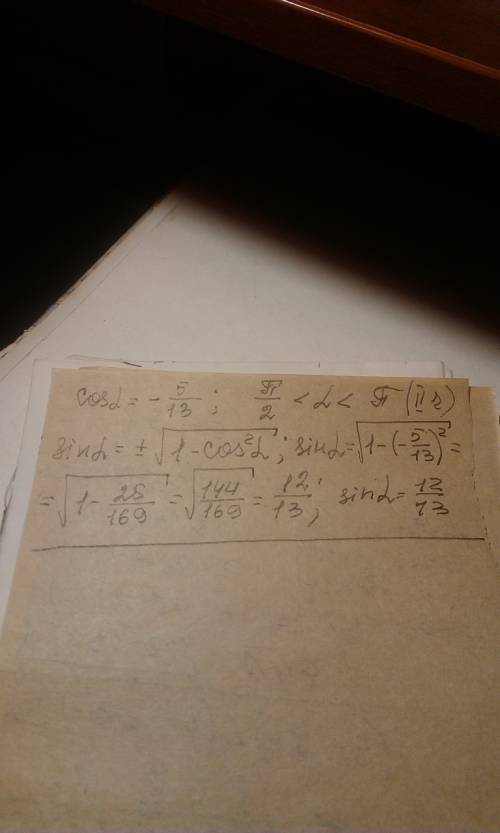 cosα = - 5/13 ; π/2 < α < π (II ч)
sinα = ± √(1 - cos²α) ; sinα = √(1 - (-5/13)²) =
= √(1 - 25/169) = √(144/169) = 12/13 ; sinα = 12/13